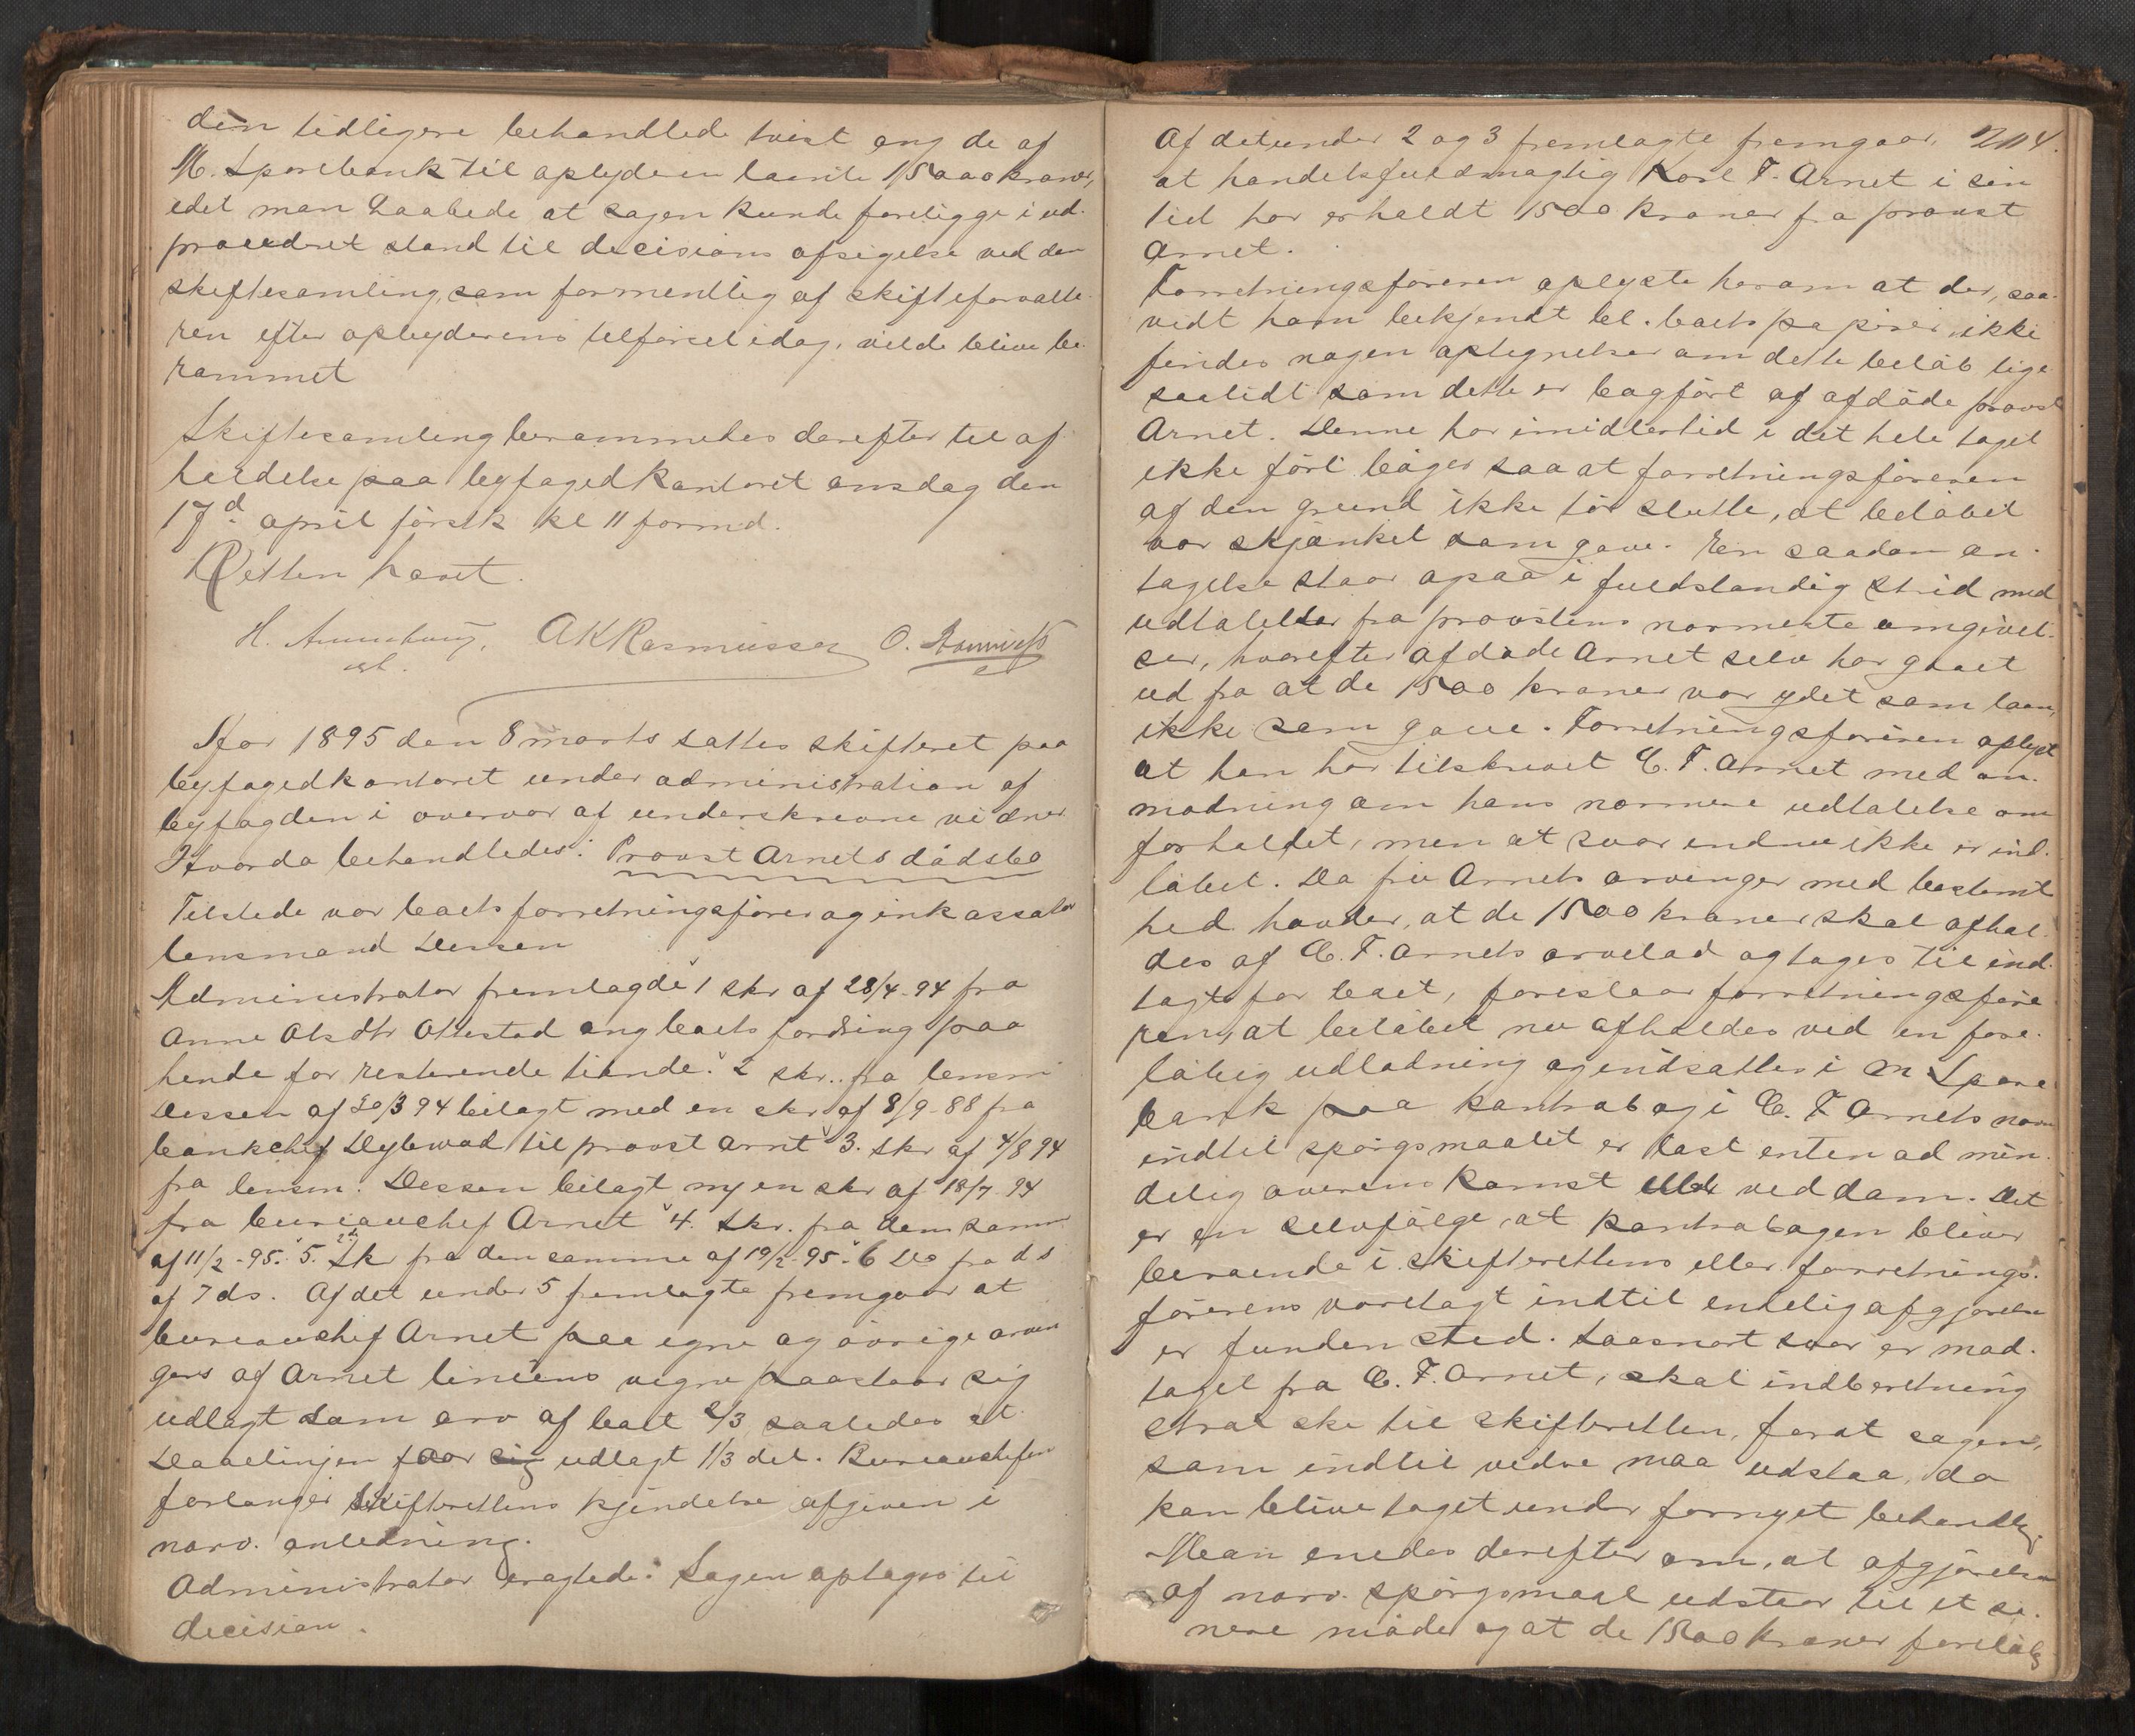 den tidligere behandlede tvist ang de af
M. Sparebank til opbyderen laante 15000 kroner,
idet man haabede at sagen kunde foreligge i ud-
procederet stand til decisions afsigelse ved den
skiftesamling, som formentlig af skifteforvalte-
ren efter opbyderens tilførsel idag, vilde blive be-
rammet
Skiftesamling berammedes derefter til af
holdelse paa byfogedkontoret onsdag den
17d april førstk kl 11 formd.
Retten hævet.
AKRasmussen O.
Aar 1895 den 8 marts sattes skifteret paa
byfogedkontoret under administration af
byfogden i overvær af underskrevne vidner
Hvorda behandledes: Provst Arnets dödsbo
Tilstede var boets forretningsförer og inkassator
lensmand Dessen
Administrator fremlagde 1 skr af 28/4-94 fra
Anne Olsdtr Ottestad ang boets fordring paa
hende for resterende tiende. 2 skr.. fra lensm
Dessen af 30/3 94 bilagt med en skr af 8/9-88 fra
bankchef Dybwad til provst Arnt 3. Skr af 4/8 94
fra lensm. Dessen bilagt m en skr af 18/7 94
fra bureauchef Arnet 4. Skr. fra den samme
af 11/2-95. 5. Sk fra den samme af 19/2-95. 6 Do fra d s
af 7 ds. Af det under 5 fremlagte fremgaar at
bureauchef Arnet paa egne og övrige arvin
gers af Arnet liniens vegne paastaar sig
udlagt som arv af boet 2/3 saaledes at
Daaelinjen faar sig udlagt 1/3 del. Bureauchefen
forlanger Skifterettens kjendelse afgiven i
nærv. anledning.
Administrator eragtede: Sagen optages til
decision.
Af det under 2 og 3 fremlagte fremgaar, 204.
at handelsfuldmægtig Karl F. Arnet i sin
tid har erholdt 1500 kroner fra provst
Arnet.
Forretningsföreren oplyste herom at der, saa-
vidt ham bekjendt bl. boets papirer ikke
findes nogen optegnelser om dette belöb lige
saalidt som dette er bogfört af afdöde provst
Arnet. Denne har imidlertid i det hele taget
ikke fört böger saa at forretningsföreren
af den grund ikke tör slutte, at belöbet
var skjænket som gave. En saadan an-
tagelse staar ogsaa i fuldstændig strid med
udtalelser fra provstens nærmeste omgivel-
ser, hvorefter afdöde Arnet selv har gaaet
ud fra at de 1500 kroner var ydet som laan,
ikke som gave. Forretningsföreren oplyst
at han har tilskrevet C. F. Arnet med an-
modning om hans nærmere udtalelse om
forholdet, men at svar endnu ikke er ind-
löbet. Da fru Arnets arvinger med bestemt
hed hævder, at de 1500 kroner skal afhol-
des af C. F. Arnets arvelod og tages til ind-
tægt for boet, foreslaar forretningsföre
ren, at belöbet nu afholdes ved en fore-
löbig udlodning og indsættes i M Spare
bank paa kontrabog i C. F Arnets navn
indtil spörgsmaalet er löst enten ad min-
delig overenskomst eller ved dom. Det
er en selvfölge, at kontrabogen bliver
beroende i skifterettens eller forretnings-
förerens varetægt indtil endelig afgjörelse
er funden sted. Saasnart svar er mod-
taget fra C. F. Arnet, skal indberetning
strax ske til skifteretten, forat sagen,
som indtil videre maa udstaa, da
kan blive taget under fornyet behandlg
Man enedes derefter om, at afgjörelsen
af nærv. spörgsmaal udstaar til et se-
nere möde og at de 1500 kroner forelöbg